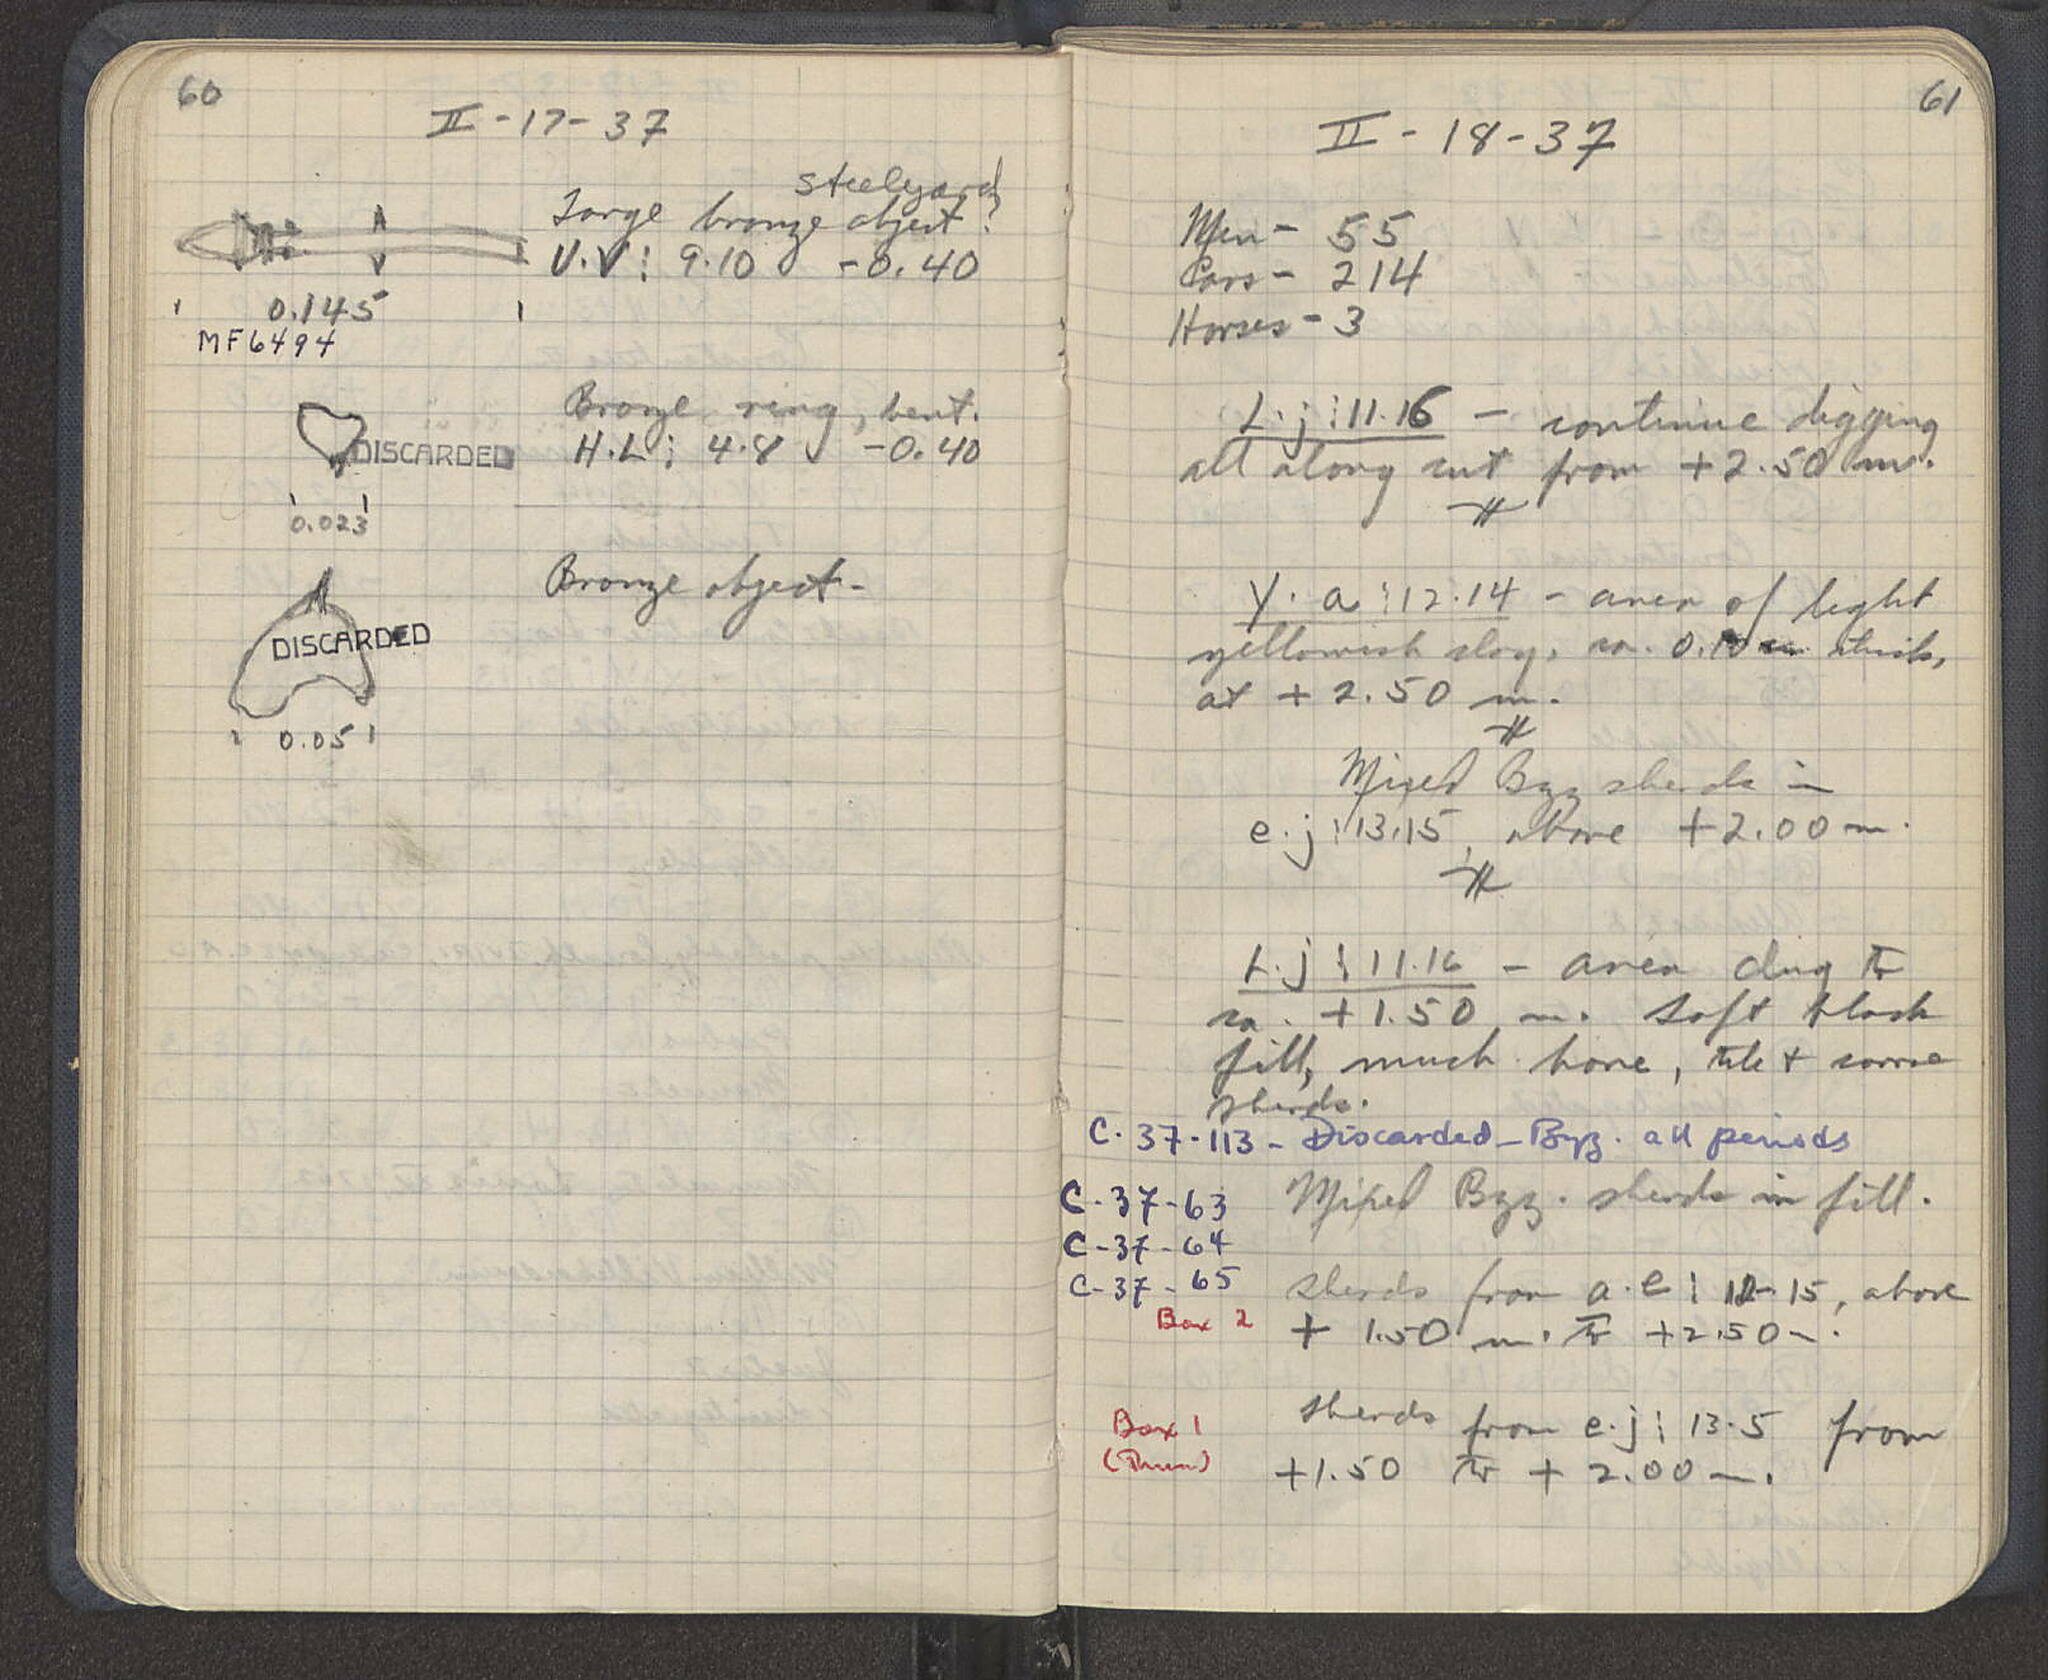 60
II-17-37
steelyard?
Large bronze object?
U.V: 9.10 -0.40
0.145
MF6494
Bronze ring, bent.
DISCARDED
H.L: 4.8 -0.40
0.023
Bronze object-
DISCARDED
0.05
61
II-18-37
Men- 55
Cars- 214
Horses- 3
L.j:11.16 - continue digging
all along cut from +2.50 m.
Y.a:12.14 - area of light
yellowish clay, ca. 0.10 m thick,
at +2.50 m.
Mixed Byz sherds in
e.j:13.15, above +2.00 m.
L.j:11.16 - area dug to
ca. +1.50 m. Soft black
fill, much bone, tile + some
sherds.
C-37-113- Discarded- Byz. all periods
C-37-63 Mixed Byz. sherds in fill.
C-37-64
C-37-65 Sherds from a.e: 12-15, above
Box 2 + 1.50 m. to +2.50 m.
Box 1 Sherds from e.j: 13.5 from
+1.50 to +2.00 m.